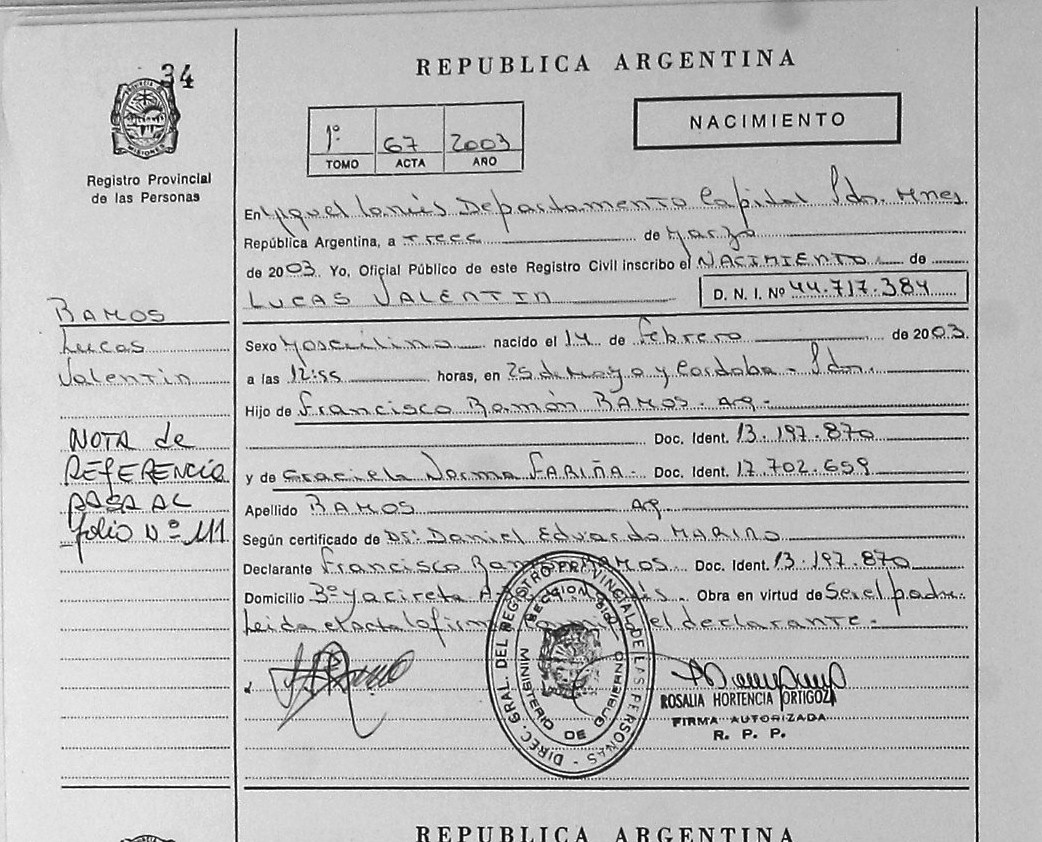 34
PROVINCIA DE
MISIONES
Registro Provincial
de las Personas
REPUBLICA ARGENTINA
NACIMIENTO
1º 67 2003
TOMO ACTA AÑO
En Miguel Lanús Departamento Capital Pdas. Mnes.
República Argentina, a Trece de Marzo
de 2003. Yo, Oficial Público de este Registro Civil inscribo el NACIMIENTO de
LUCAS VALENTIN D. N. I. Nº 44.717.384
Sexo Masculino nacido el 14 de Febrero de 2003
a las 12:55 horas, en 25 de Mayo y Cordoba - Pdas.
Hijo de Francisco Ramón RAMOS - Arg -
Doc. Ident. 13.197.870
y de Graciela Norma FARIÑA - Doc. Ident. 17.702.659
Apellido RAMOS Arg
Según certificado de Dr: Daniel Edvardo MARINO
Declarante Francisco RAMOS Doc. Ident. 13.197.870
Domicilio Bº Yacireta Obra en virtud de Ser el padre.
Leida el acta la firma el declarante.-
RAMOS
Lucas
Valentin
NOTA de
REFERENCIA
PASA AL
folio Nº 111
DIREC. GRAL. DEL REGISTRO PROVINCIAL DE LAS PERSONAS
MINISTERIO DE GOBIERNO
ROSALIA HORTENCIA ORTIGOZA
FIRMA AUTORIZADA
R. P. P.
REPUBLICA ARGENTINA